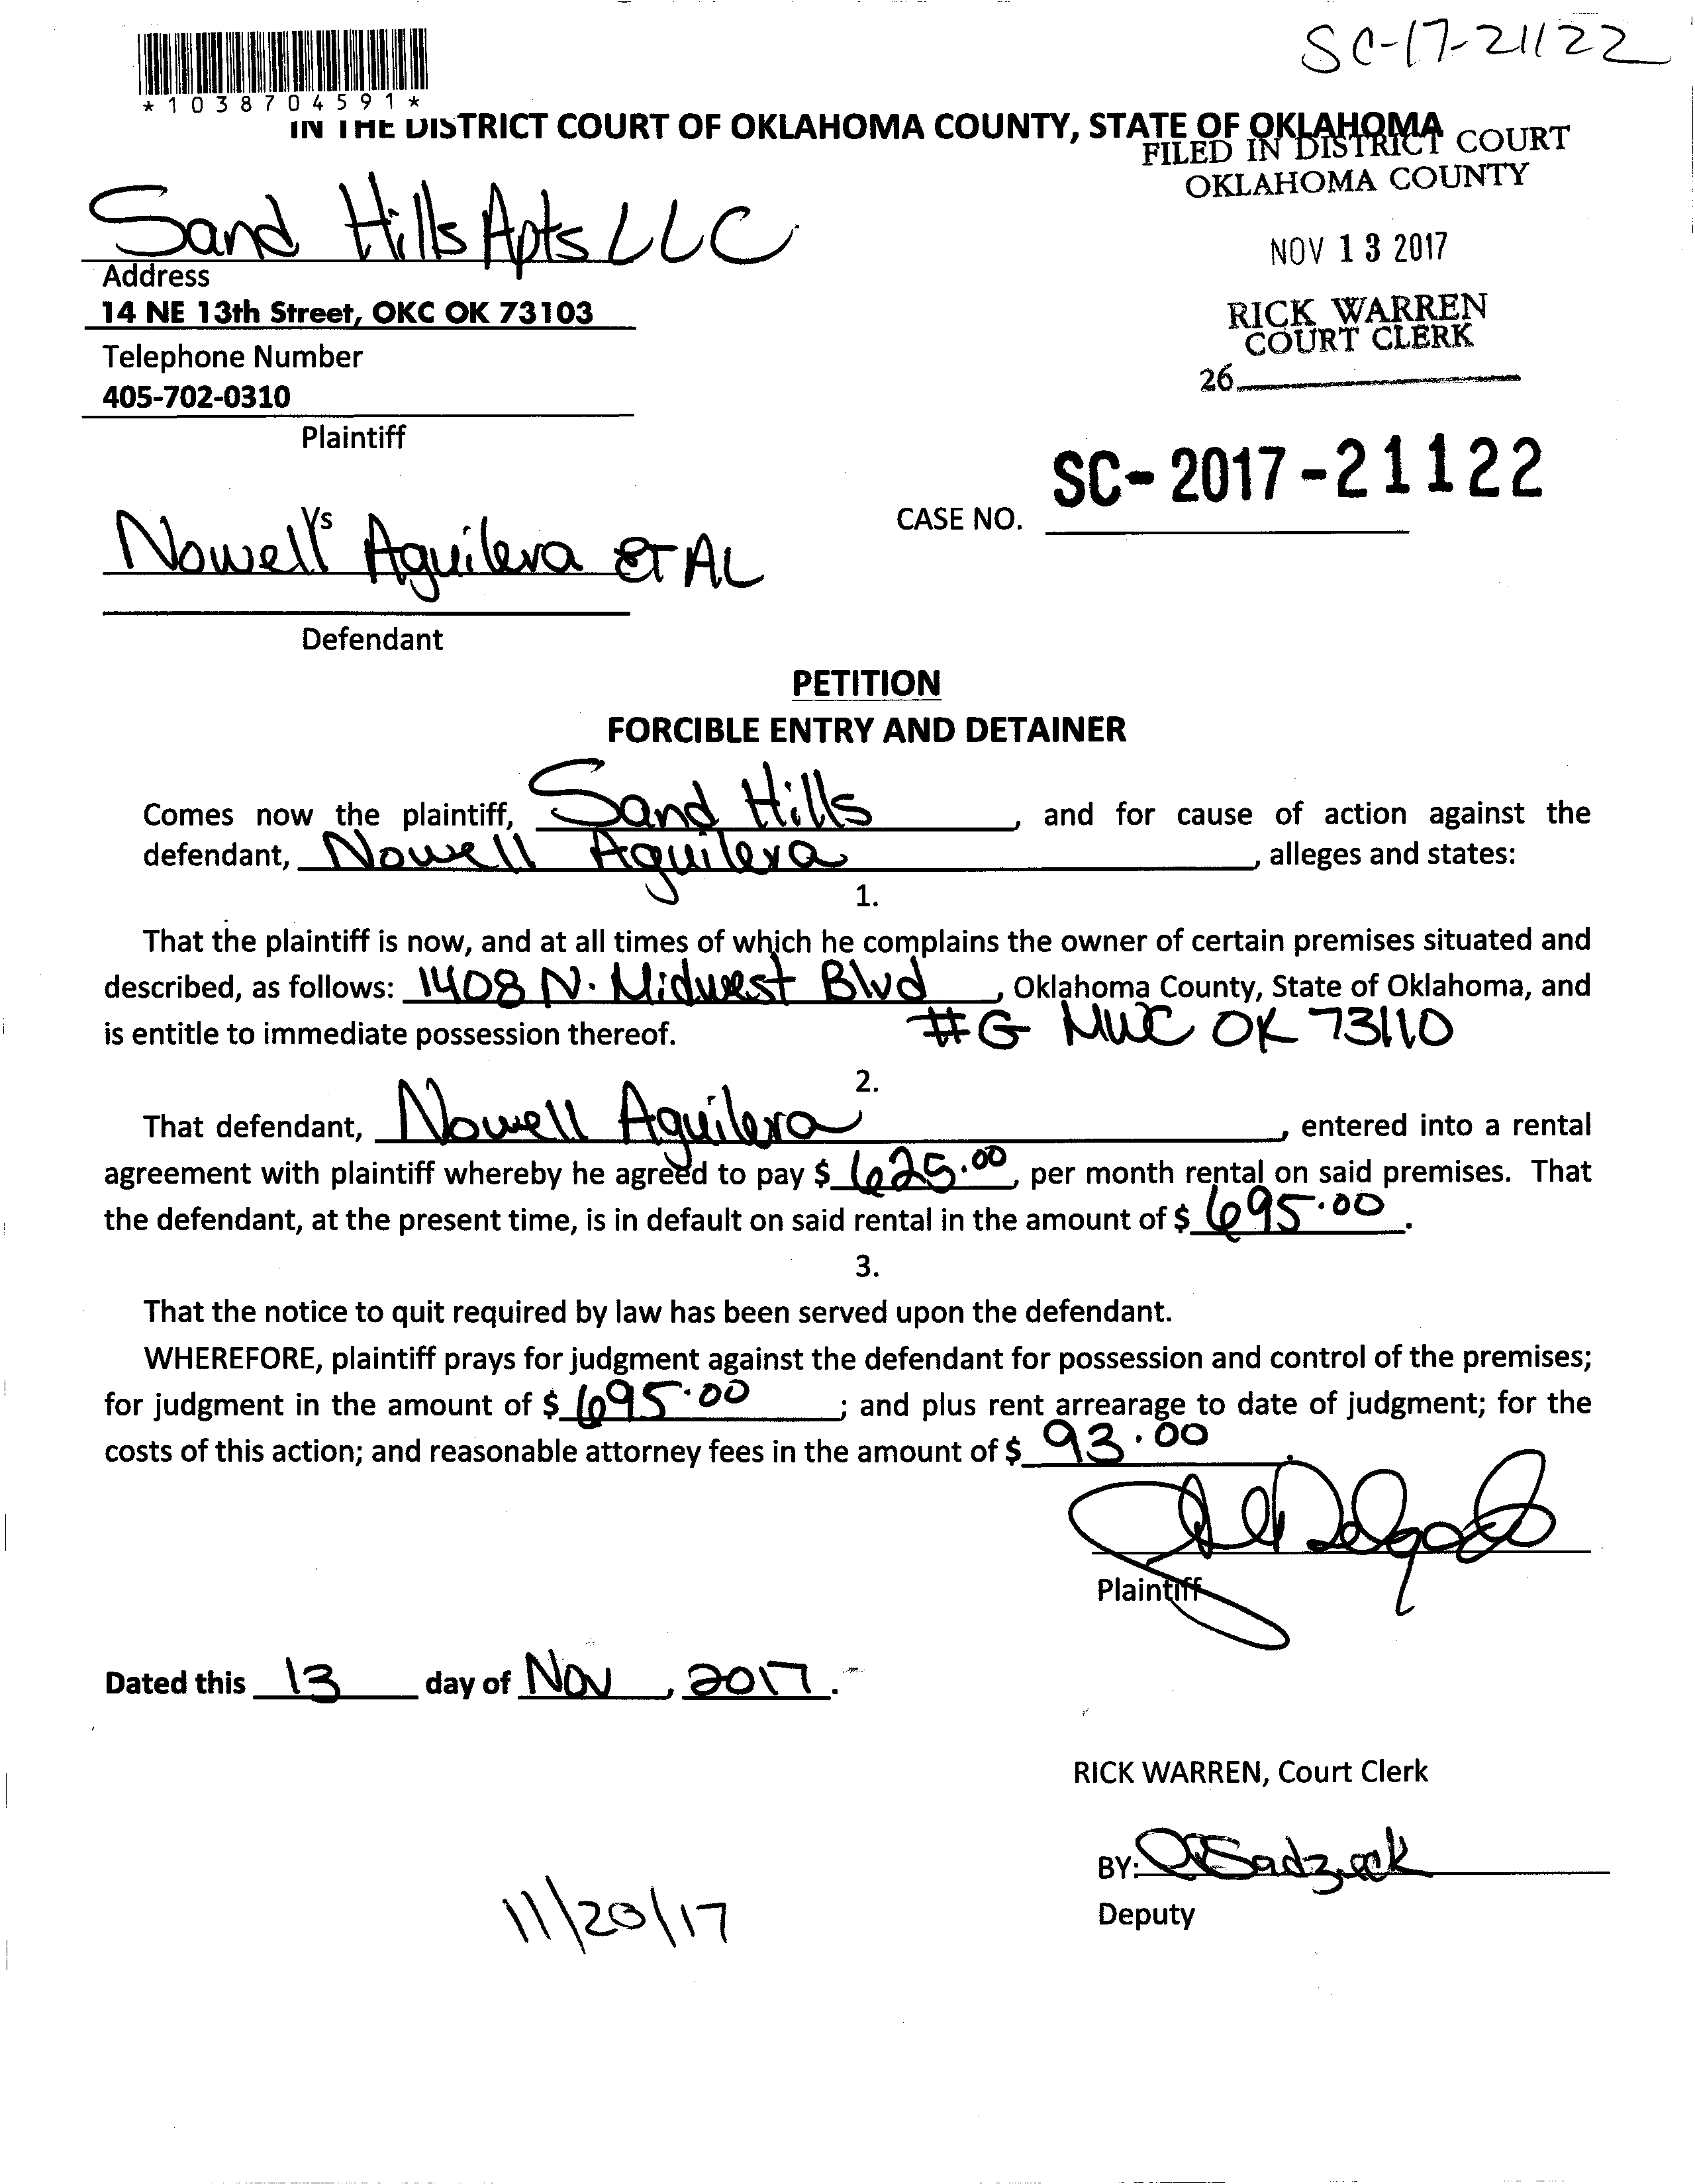 SC-17-21122
*1038704591*
IN THE DISTRICT COURT OF OKLAHOMA COUNTY, STATE OF OKLAHOMA
FILED IN DISTRICT COURT
OKLAHOMA COUNTY
NOV 13 2017
RICK WARREN
COURT CLERK
26
Sand Hills Apts LLC
Address
14 NE 13th Street, OKC OK 73103
Telephone Number
405-702-0310
Plaintiff
Vs
CASE NO. SC-2017-21122
Nowell Aguilera ET AL
Defendant
PETITION
FORCIBLE ENTRY AND DETAINER
Comes now the plaintiff, Sand Hills, and for cause of action against the
defendant, Nowell Aguilera, alleges and states:
1.
That the plaintiff is now, and at all times of which he complains the owner of certain premises situated and
described, as follows: 1408 N. Midwest Blvd, Oklahoma County, State of Oklahoma, and
is entitle to immediate possession thereof. #G MWC OK 73110
2.
That defendant, Nowell Aguilera, entered into a rental
agreement with plaintiff whereby he agreed to pay $ 625.00, per month rental on said premises. That
the defendant, at the present time, is in default on said rental in the amount of $ 695.00.
3.
That the notice to quit required by law has been served upon the defendant.
WHEREFORE, plaintiff prays for judgment against the defendant for possession and control of the premises;
for judgment in the amount of $ 695.00; and plus rent arrearage to date of judgment; for the
costs of this action; and reasonable attorney fees in the amount of $ 93.00.
Delgado
Plaintiff
Dated this 13 day of Nov, 2017.
RICK WARREN, Court Clerk
BY:
Deputy
11/20/17